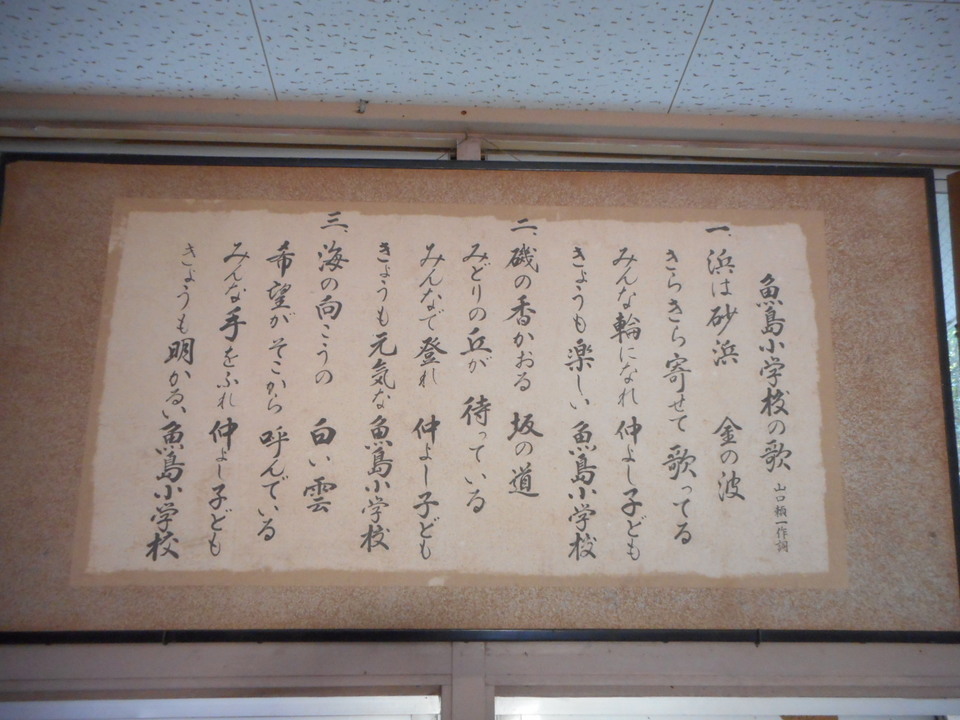 魚島小学校の歌 山口頼一作詞
一、浜は砂浜 金の波
きらきら寄せて 歌ってる
みんな輪になれ 仲よし子ども
きょうも楽しい 魚島小学校
二、磯の香かおる 坂の道
みどりの丘が 待っている
みんなで登れ 仲よし子ども
きょうも元気な 魚島小学校
三、海の向こうの 白い雲
希望がそこから 呼んでいる
みんな手をふれ 仲よし子ども
きょうも明かるい 魚島小学校